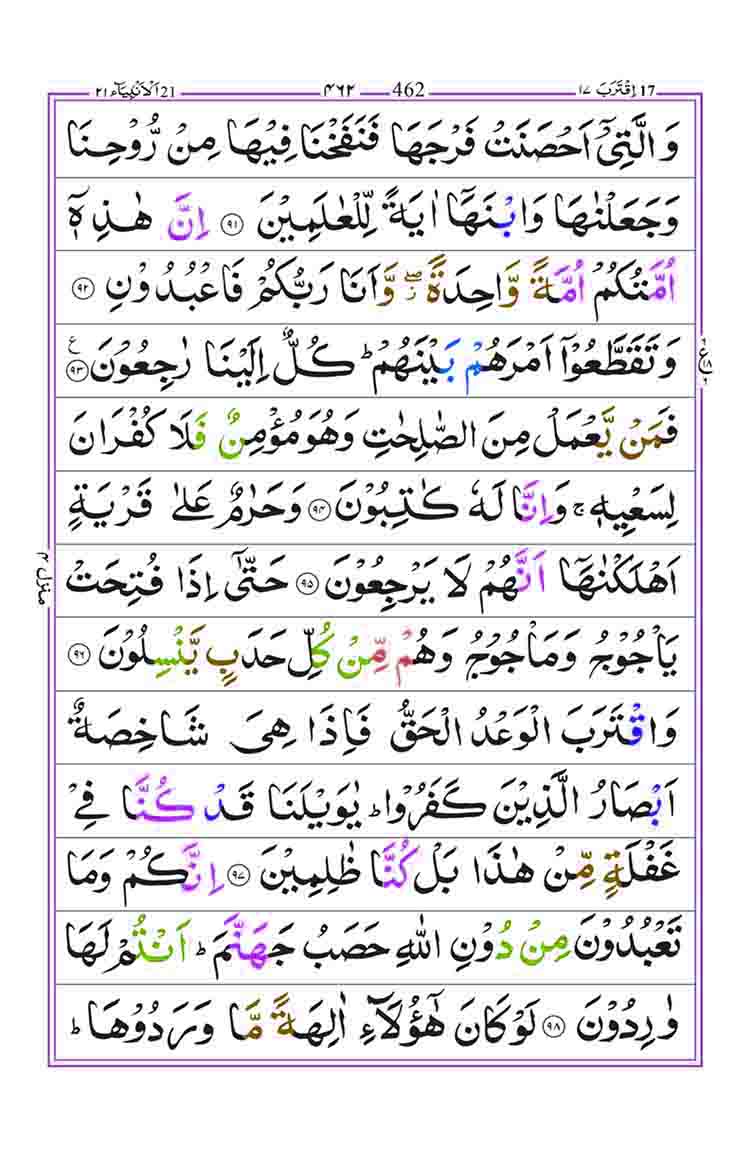 ٢١ اَلْاَنْۢبِيَآء 21 ٤٦٢ 462 ١٧ اِقْتَرَبَ 17
وَالَّتِيْۤ اَحْصَنَتْ فَرْجَهَا فَنَفَخْنَا فِيْهَا مِنْ رُّوْحِنَا
وَجَعَلْنٰهَا وَابْنَهَاۤ اٰيَةً لِّلْعٰلَمِيْنَ ﴿٩١﴾ اِنَّ هٰذِهٖۤ
اُمَّتُكُمْ اُمَّةً وَّاحِدَةً ۖ وَّاَنَا رَبُّكُمْ فَاعْبُدُوْنِ ﴿٩٢﴾
وَتَقَطَّعُوْۤا اَمْرَهُمْ بَيْنَهُمْ ؕ كُلٌّ اِلَيْنَا رٰجِعُوْنَ ﴿٩٣﴾ ع
ع ٨
فَمَنْ يَّعْمَلْ مِنَ الصّٰلِحٰتِ وَهُوَ مُؤْمِنٌ فَلَا كُفْرَانَ
لِسَعْيِهٖ ۚ وَاِنَّا لَهٗ كٰتِبُوْنَ ﴿٩٤﴾ وَحَرٰمٌ عَلٰى قَرْيَةٍ
اَهْلَكْنٰهَاۤ اَنَّهُمْ لَا يَرْجِعُوْنَ ﴿٩٥﴾ حَتّٰۤى اِذَا فُتِحَتْ
منزل ٤
يَاْجُوْجُ وَمَاْجُوْجُ وَهُمْ مِّنْ كُلِّ حَدَبٍ يَّنْسِلُوْنَ ﴿٩٦﴾
وَاقْتَرَبَ الْوَعْدُ الْحَقُّ فَاِذَا هِيَ شَاخِصَةٌ
اَبْصَارُ الَّذِيْنَ كَفَرُوْا ؕ يٰوَيْلَنَا قَدْ كُنَّا فِيْ
غَفْلَةٍ مِّنْ هٰذَا بَلْ كُنَّا ظٰلِمِيْنَ ﴿٩٧﴾ اِنَّكُمْ وَمَا
تَعْبُدُوْنَ مِنْ دُوْنِ اللّٰهِ حَصَبُ جَهَنَّمَ ؕ اَنْتُمْ لَهَا
وٰرِدُوْنَ ﴿٩٨﴾ لَوْ كَانَ هٰۤؤُلَآءِ اٰلِهَةً مَّا وَرَدُوْهَا ؕ